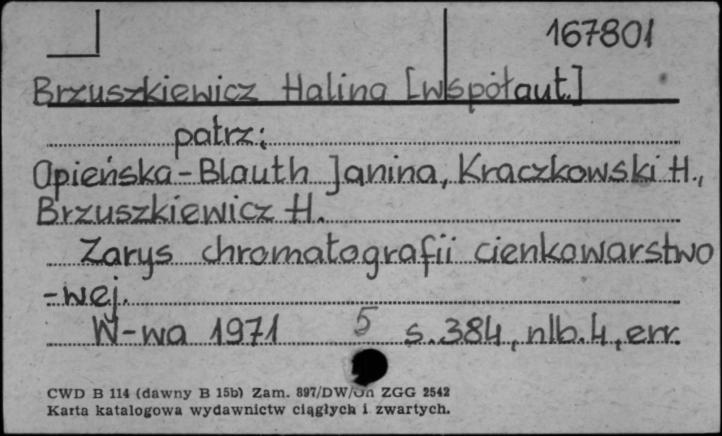 167801
Brzuszkiewicz Halina [współaut.]
patrz:
Opieńska-Blauth Janina, Kraczkowski H.,
Brzuszkiewicz H.
Zarys chromatografii cienkowarstwo
-wej.
W-wa 1971 5 s. 384, nlb. 4, err.
CWD B 114 (dawny B 15b) Zam. 897/DW/Un ZGG 2542
Karta katalogowa wydawnictw ciągłych i zwartych.